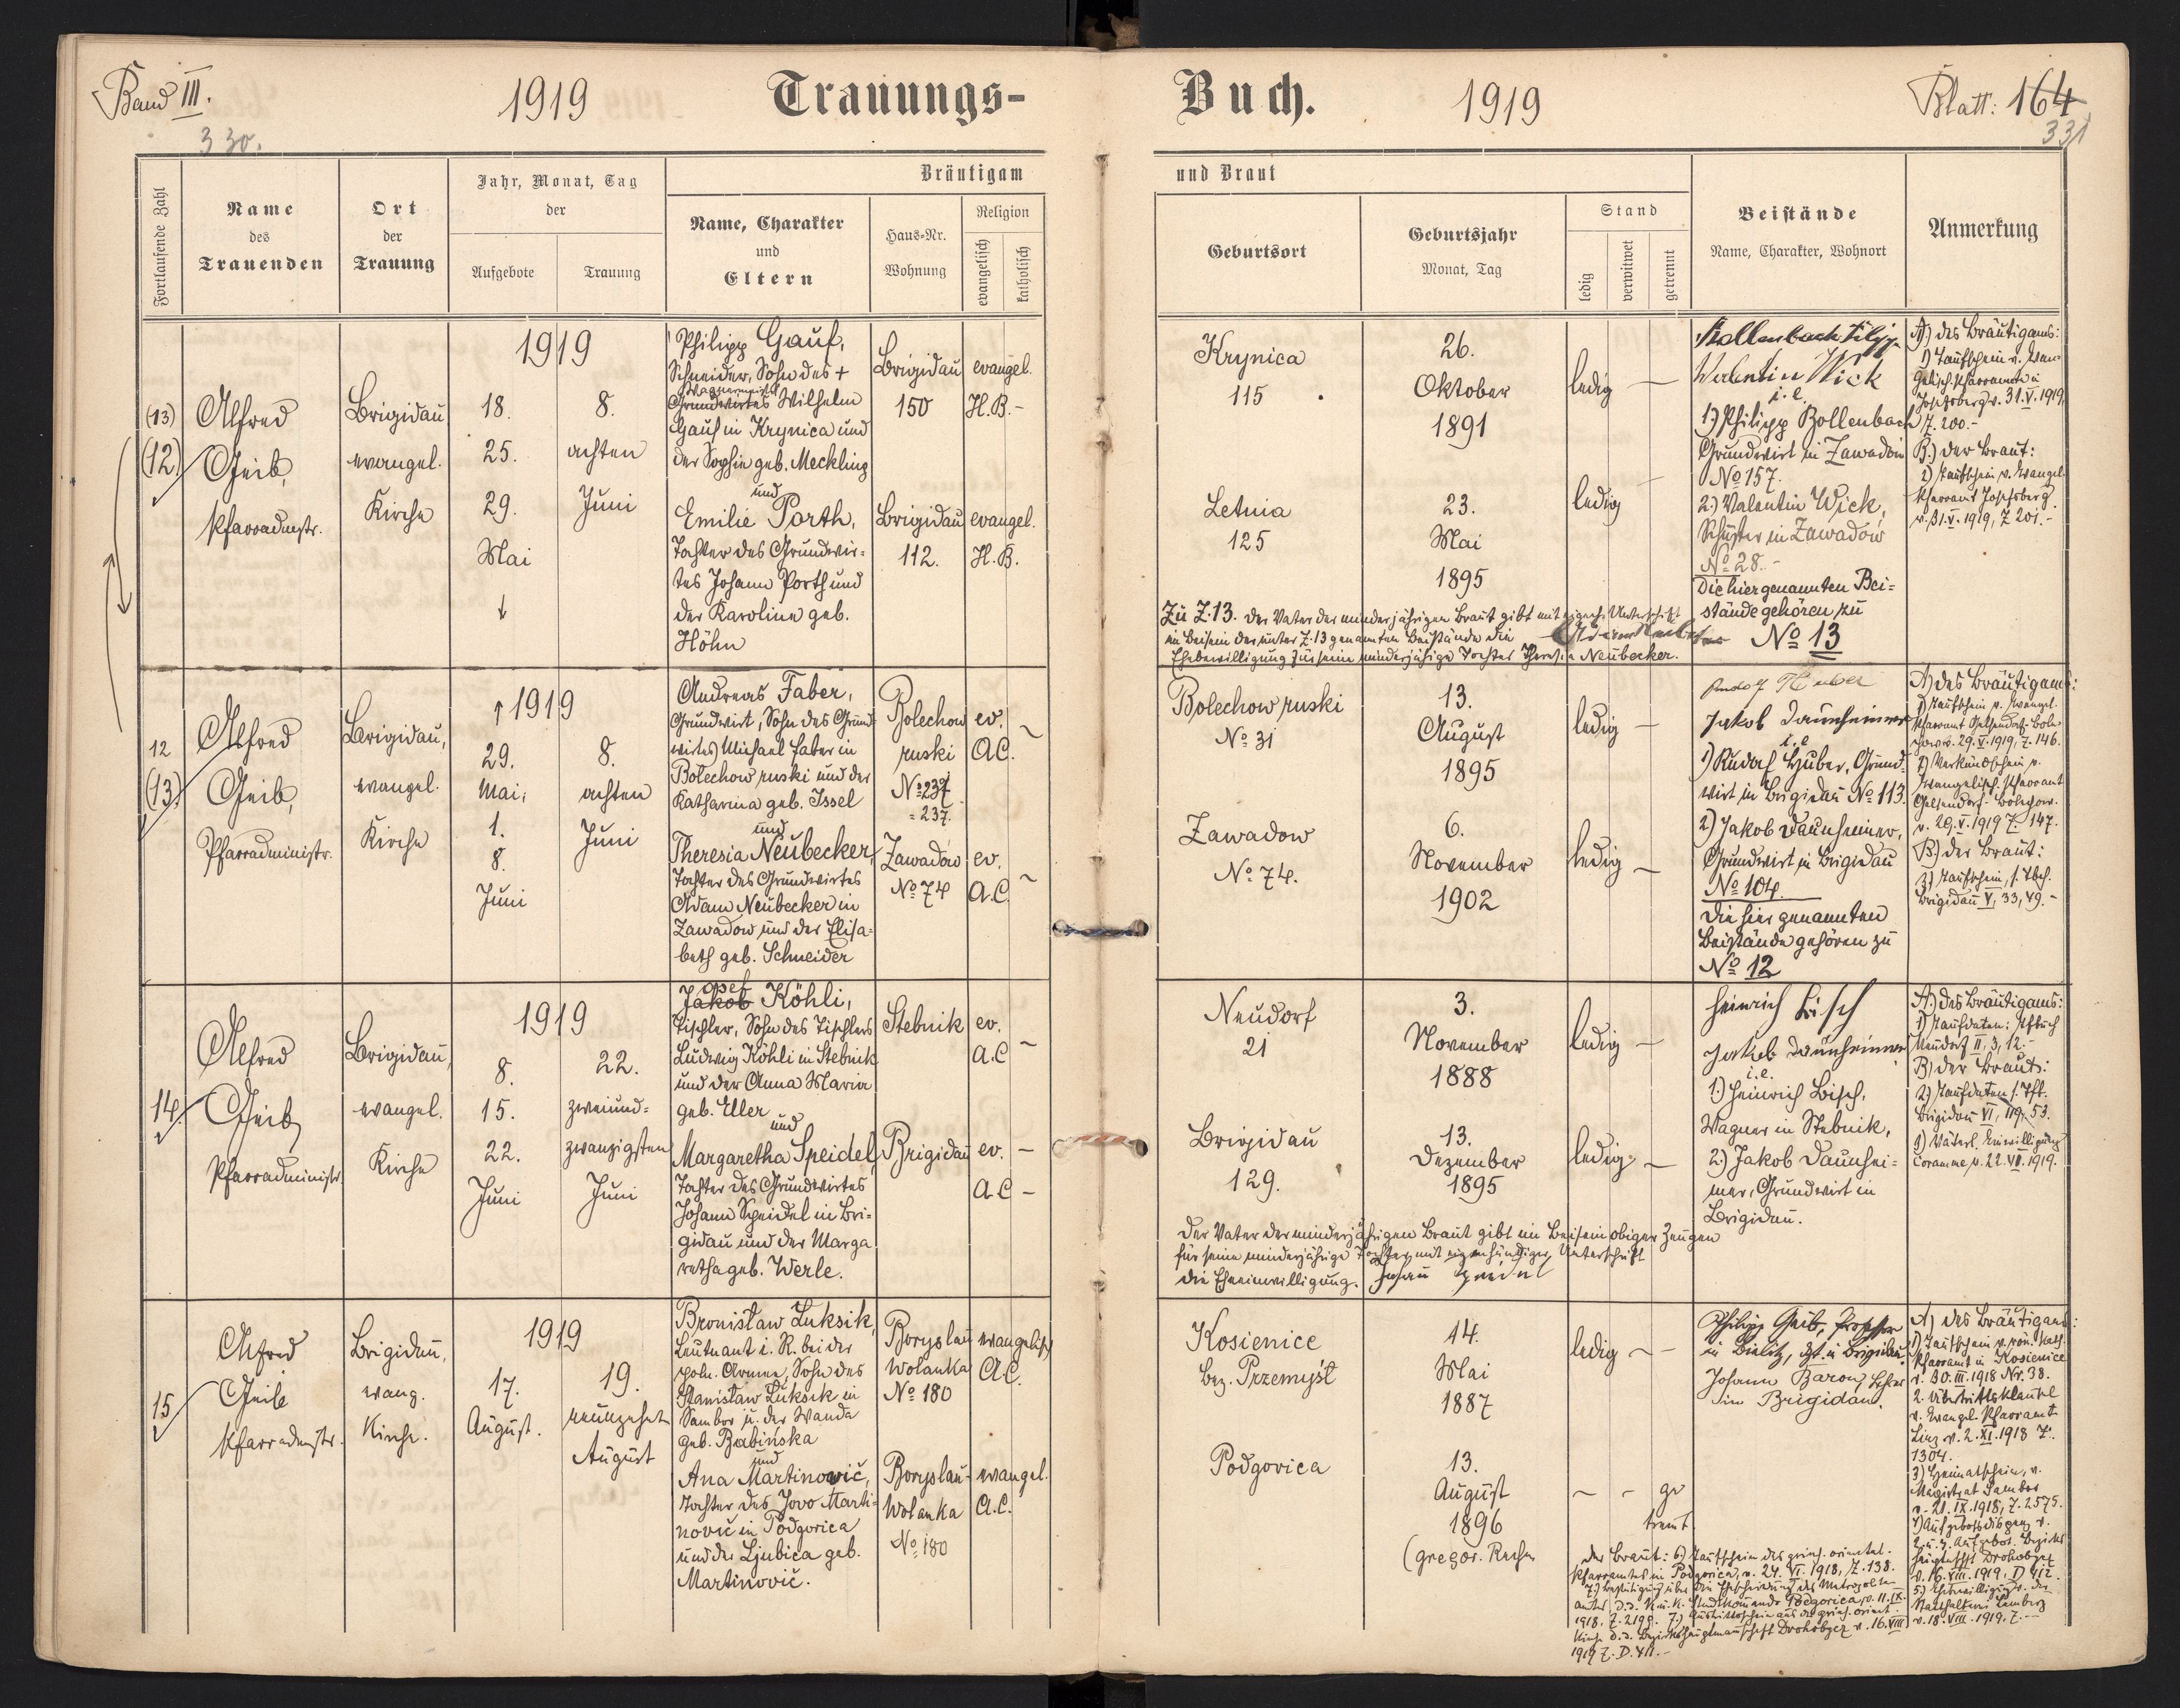 Band III. 1919 Trauungs-
330.
Fortlaufende Zahl
Name
des
Trauenden
Ort
der
Trauung
Jahr, Monat, Tag
der
Aufgebote Trauung
Bräutigam
Name, Charakter
und
Eltern
Haus-Nr.
Wohnung
Religion
evangelisch
katholisch
(13)
(12.)
Alfred
Geib,
Pfarradmstr.
Brigidau
evangel.
Kirche
1919
18.
25.
29.
Mai
↓
8.
achten
Juni
Philipp Gauf,
Schneider, Sohn des +
Wagnermeisters
Grundwirtes Wilhelm
Gauf in Krynica und
der Sophie geb. Meckling
und
Emilie Porth,
Tochter des Grundwir-
tes Johann Porth und
der Karoline geb.
Höhn
Brigidau
150
Brigidau
112.
evangel.
H.B.-
evangel.
H.B.
12
(13.)
Alfred
Geib,
Pfarradministr.
Brigidau,
evangel.
Kirche
↑ 1919
29.
Mai,
1.
8.
Juni
8.
achten
Juni
Andreas Faber,
Grundwirt, Sohn des Grund-
wirtes Michael Faber in
Bolechow ruski und der
Katharina geb. Issel
und
Theresia Neubecker,
Tochter des Grundwirtes
Adam Neubecker in
Zawadow und der Elisa-
beth geb. Schneider
Bolechow
ruski
No 237
= 237.
Zawadow
No 74
ev.
A.C.
ev.
A.C.
14.
Alfred
Geib,
Pfarradministr.
Brigidau,
evangel.
Kirche
1919
8.
15.
22.
Juni
22.
zweiund-
zwanzigsten
Juni
osef
Jakob Köhli,
Tischler, Sohn des Tischlers
Ludwig Köhli in Stebnik
und der Anna Maria
geb. Eller
und
Margaretha Speidel,
Tochter des Grundwirtes
Johann Speidel in Bri-
gidau und der Marga
retha geb. Werle.
Stebnik
Brigidau
ev.
A.C
ev. -
A.C -
15
Alfred
Geib
Pfarradmstr.
Brigidau,
evang.
Kirche.
1919
17.
August.
19.
neunzehnt
August
Bronisław Łuksik,
Leutnant i. R. bei der
poln. Armee, Sohn des
Stanisław Łuksik in
Sambor u. der Wanda
geb. Babińska
und
Ana Martinović,
Tochter des Jovo Marti-
nović in Podgorica
und der Ljubica geb.
Martinović.
Boryslau
Wolanka
No 180
Boryslau-
Wolanka
No 180
evangelisch
A.C.
evangel.
A.C.
Buch. 1919 Blatt: 164
331
und Braut
Geburtsort
Geburtsjahr
Monat, Tag
Stand
ledig
verwitwet
getrennt
Beistände
Name, Charakter, Wohnort
Anmerkung
Krynica
115
Letnia
125
26.
Oktober
1891
23.
Mai
1895
ledig -
ledig
Bollenbach Filipp
Walentin Wick
i.e.
1) Philipp Bollenbach
Grundwirt in Zawadow
No 157.
2.) Valentin Wick,
Schuster in Zawadow
No 28.-
Die hier genannten Bei-
stände gehören zu
No 13
A) des Bräutigams:
1) Taufschein v. evan-
gelisch. Pfarramte in
Josefsberg v. 31.V.1919,
Z. 200.-
B.) der Braut:
2) Taufschein v. evangel.
Pfarramt Josefsberg
v. 31.V.1919, Z 201.-
Zu Z.13. Der Vater der minderjährigen Braut gibt mit eigenh. Unterschrift
im Beisein der unter Z.13 genannten Beistände die
Ehebewilligung für seine minderjährige Tochter Theresia Neubecker.
Bolechow ruski
No 31
Zawadow
No 74.
13.
August
1895
6.
November
1902
ledig -
ledig -
Rudolf Huber
Jakob Daunheimer
i.e
1) Rudolf Huber, Grund-
wirt in Brigidau No 113.
2) Jakob Daunheimer,
Grundwirt in Brigidau
No 104.
Die hier genannten
Beistände gehören zu
No 12
A) des Bräutigams:
1) Taufschein v. evangel.
Pfarramt Gelsendorf-Bole-
chow v. 29.V.1919, Z. 146.
2) Verkündschein v.
evangelisch. Pfarramt
Gelsendorf-Bolechow.
v. 29.V.1919 Z 147.
B) der Braut:
3) Taufschein, s. Tbch.
Brigidau V, 33, 49.-
Neudorf
21
Brigidau
129.
3.
November
1888
13.
Dezember
1895
ledig -
ledig -
Heinrich Bisch
Jakob Daunheimer
i.e.
1.) Heinrich Bisch,
Wagner in Stebnik,
2.) Jakob Daunhei-
mer, Grundwirt in
Brigidau.
A.) des Bräutigams:
1) Taufdaten: Tfbuch
Neudorf II, 3, 12.-
B) der Braut:
2) Taufdaten s. Tft.
Brigidau VI, 119, 53.
1) Väterl. Einwilligung
v. 22.VI.1919.
Der Vater der minderjährigen Braut gibt im Beisein obiger Zeugen
für seine minderjährige Tochter mit eigenhändiger Unterschrift
die Eheeinwilligung. Johan Speidel
Kosienice
bez. Przemyśl
Podgorica
14.
Mai
1887
13.
August
1896
(gregor. Rechn.
ledig - -
- - ge
trennt
Philipp Geib, Professor
in Bielitz, dzt. in Brigidau.
Johann Baron, Lehrer
in Brigidau.
A) des Bräutigams:
1) Taufschein v. röm. kath.
Pfarramt in Kosienice
v. 30.III.1918 Nr. 38.
2. Übertrittsklausel
v. Evangel. Pfarramt
Linz v. 2.XI.1918 Z.
1304.
3) Heimatschein, v.
Magistrat Sambor
v. 21.IX.1918, Z. 2575.
4) Aufgebotsdispenz v.
2. u. 3. Aufgebot. Bezirks
hauptmschft Drohobycz
v. 16.VIII.1919, D 412.
5.) Ehebewilligung v. der
Statthalterei Lemberg
v. 18.VIII.1919, Z.-
der Braut: 6) Taufschein des griech. oriental.
Pfarramtes in Podgorica, v. 24.VI.1918, Z. 138.
7) Bestätigung über die Ehescheidung des Metropoliten
amtes, d.d. K.u.K. Stadtkommando Podgorica v. 11.IX.
1918. Z. 2199. 7.) Austrittsschein aus der griech. orient.
Kirche d.d. Bezirkshauptmannschaft Drohobycz v. 16.VIII
1919 Z. D. 411.-